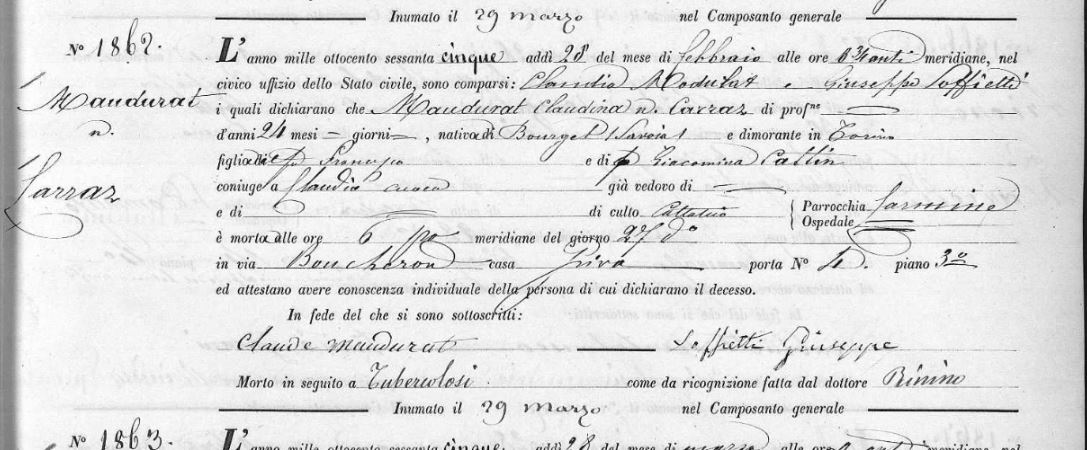 Inumato il 29 marzo nel Camposanto generale
N° 1862.
Maudurat
n.
Carraz
L'anno mille ottocento sessanta cinque addì 28 del mese di febbraio alle ore meridiane, nel
civico uffizio dello Stato civile, sono comparsi: Claudio Modulat e Giuseppe Soffietti
i quali dichiarano che Maudurat Claudina n. Carraz di prof.ne
d'anni 24 mesi = giorni = , nativa di Bourget (Savoia) e dimorante in Torino
figlia di Francesco e di Giacomina Cattin
coniuge a Claudio già vedovo di
e di di culto Cattolico { Parrocchia Carmine
Ospedale
è morta alle ore 6 po meridiane del giorno 27 do
in via Boucheron casa Riva porta N° 4. piano 3°
ed attestano avere conoscenza individuale della persona di cui dichiarano il decesso.
In fede del che si sono sottoscritti:
Claude Maudurat Soffietti Giuseppe
Morto in seguito a Tubercolosi come da ricognizione fatta dal dottore Rinino
Inumato il 29 marzo nel Camposanto generale
N° 1863.
L'anno mille ottocento sessanta cinque addì 28 del mese di marzo alle ore meridiane, nel